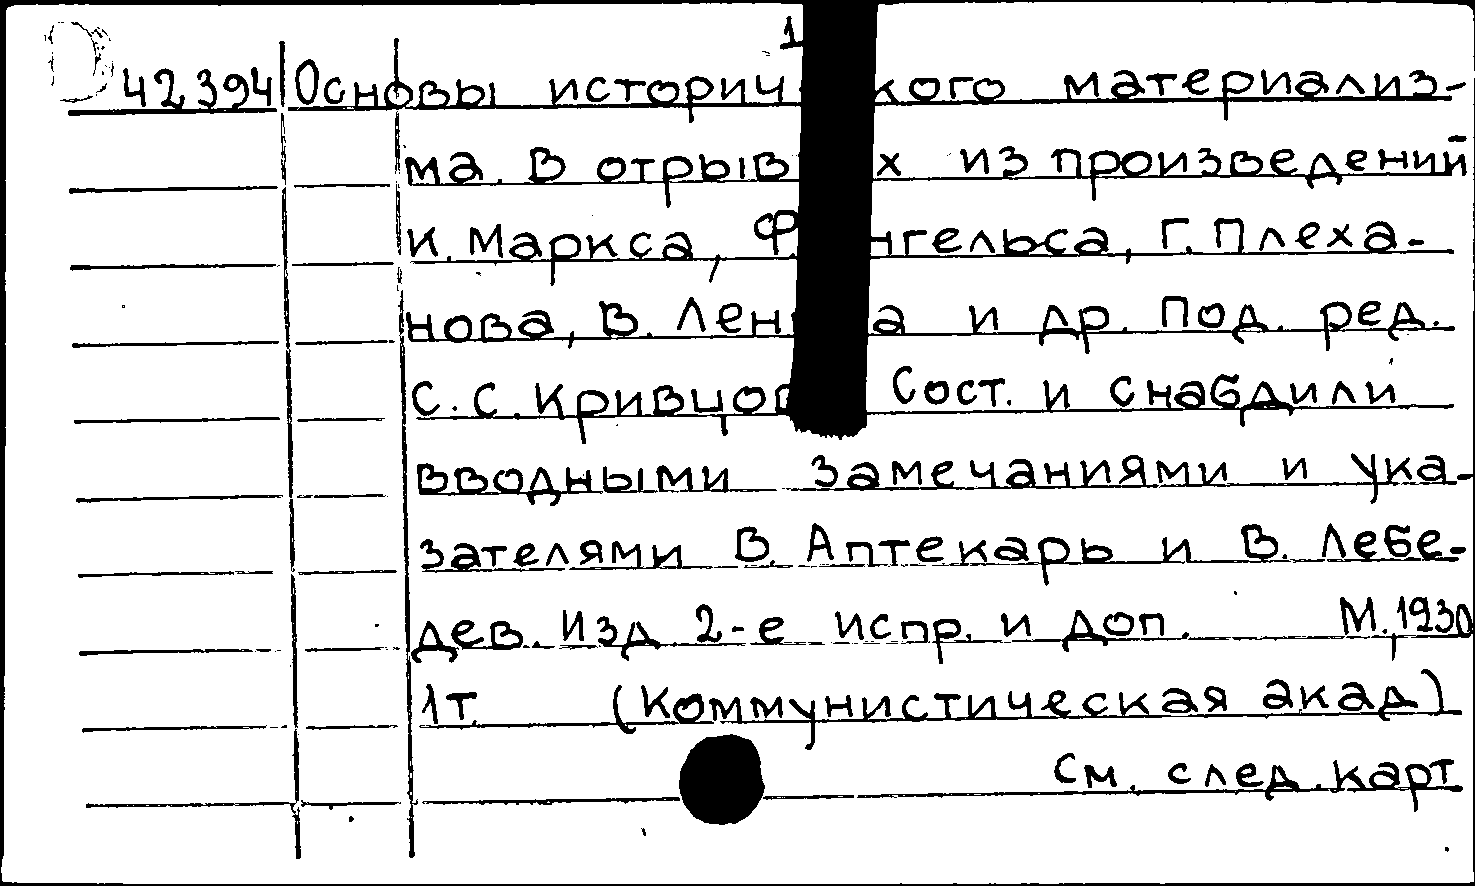 1
42394 Основы исторического материализ-
ма. В отрывках из произведений
К. Маркса, Ф. Энгельса, Г. Плеха-
нова, В. Ленина и др. Под. ред.
С.С. Кривцова Сост. и снабдили
вводными замечаниями и ука-
зателями В. Аптекарь и В. Лебе-
дев. Изд 2-е испр. и доп. М., 1930
1т. (Коммунистическая акад)
См. след. карт